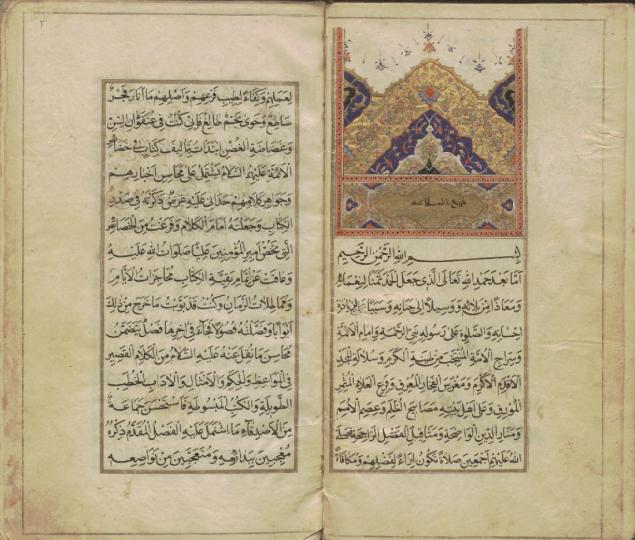 ٢
نهج البلاغه
بسم الله الرحمن الرحيم
اما بعد حمد الله تعالى الذي جعل الحمد ثمنا لنعمائه
ومعاذا من بلائه ووسيلا الى جنانه وسببا لزيادة
احسانه والصلاة على رسوله نبي الرحمة وامام الائمة
وسراج الامة المنتجب من طينة الكرم وسلالة المجد
الاقدم ومغرس الفخار المعرق وفرع العلاء المثمر
المورق وعلى اهل بيته مصابيح الظلم وعصم الامم
ومنار الدين الواضحة ومثاقيل الفضل الراجحة فصلى
الله عليهم اجمعين صلاة تكون ازاء لفضلهم ومكافاة
لعملهم وكفاء لطيب فرعهم واصلهم ما انار فجر
ساطع وخوى نجم طالع فاني كنت في عنفوان السن
وغضاضة الغصن ابتدات بتاليف كتاب في خصائص
الائمة عليهم السلام يشتمل على محاسن اخبارهم
وجواهر كلامهم حداني عليه غرض ذكرته في صدر
الكتاب وجعلته امام الكلام وفرغت من الخصائص
التي تخص امير المؤمنين عليا صلوات الله عليه
وعاقت عن اتمام بقية الكتاب محاجزات الايام
ومماطلات الزمان وكنت قد بوبت ما خرج من ذلك
ابوابا وفصلته فصولا فجاء في اخرها فصل يتضمن
محاسن ما نقل عنه عليه السلام من الكلام القصير
في المواعظ والحكم والامثال والاداب الخطب
الطويلة والكتب المبسوطة فاستحسن جماعة
من الاصدقاء ما اشتمل عليه الفصل المقدم ذكره
معجبين ببدائعه ومتعجبين من نواصعه